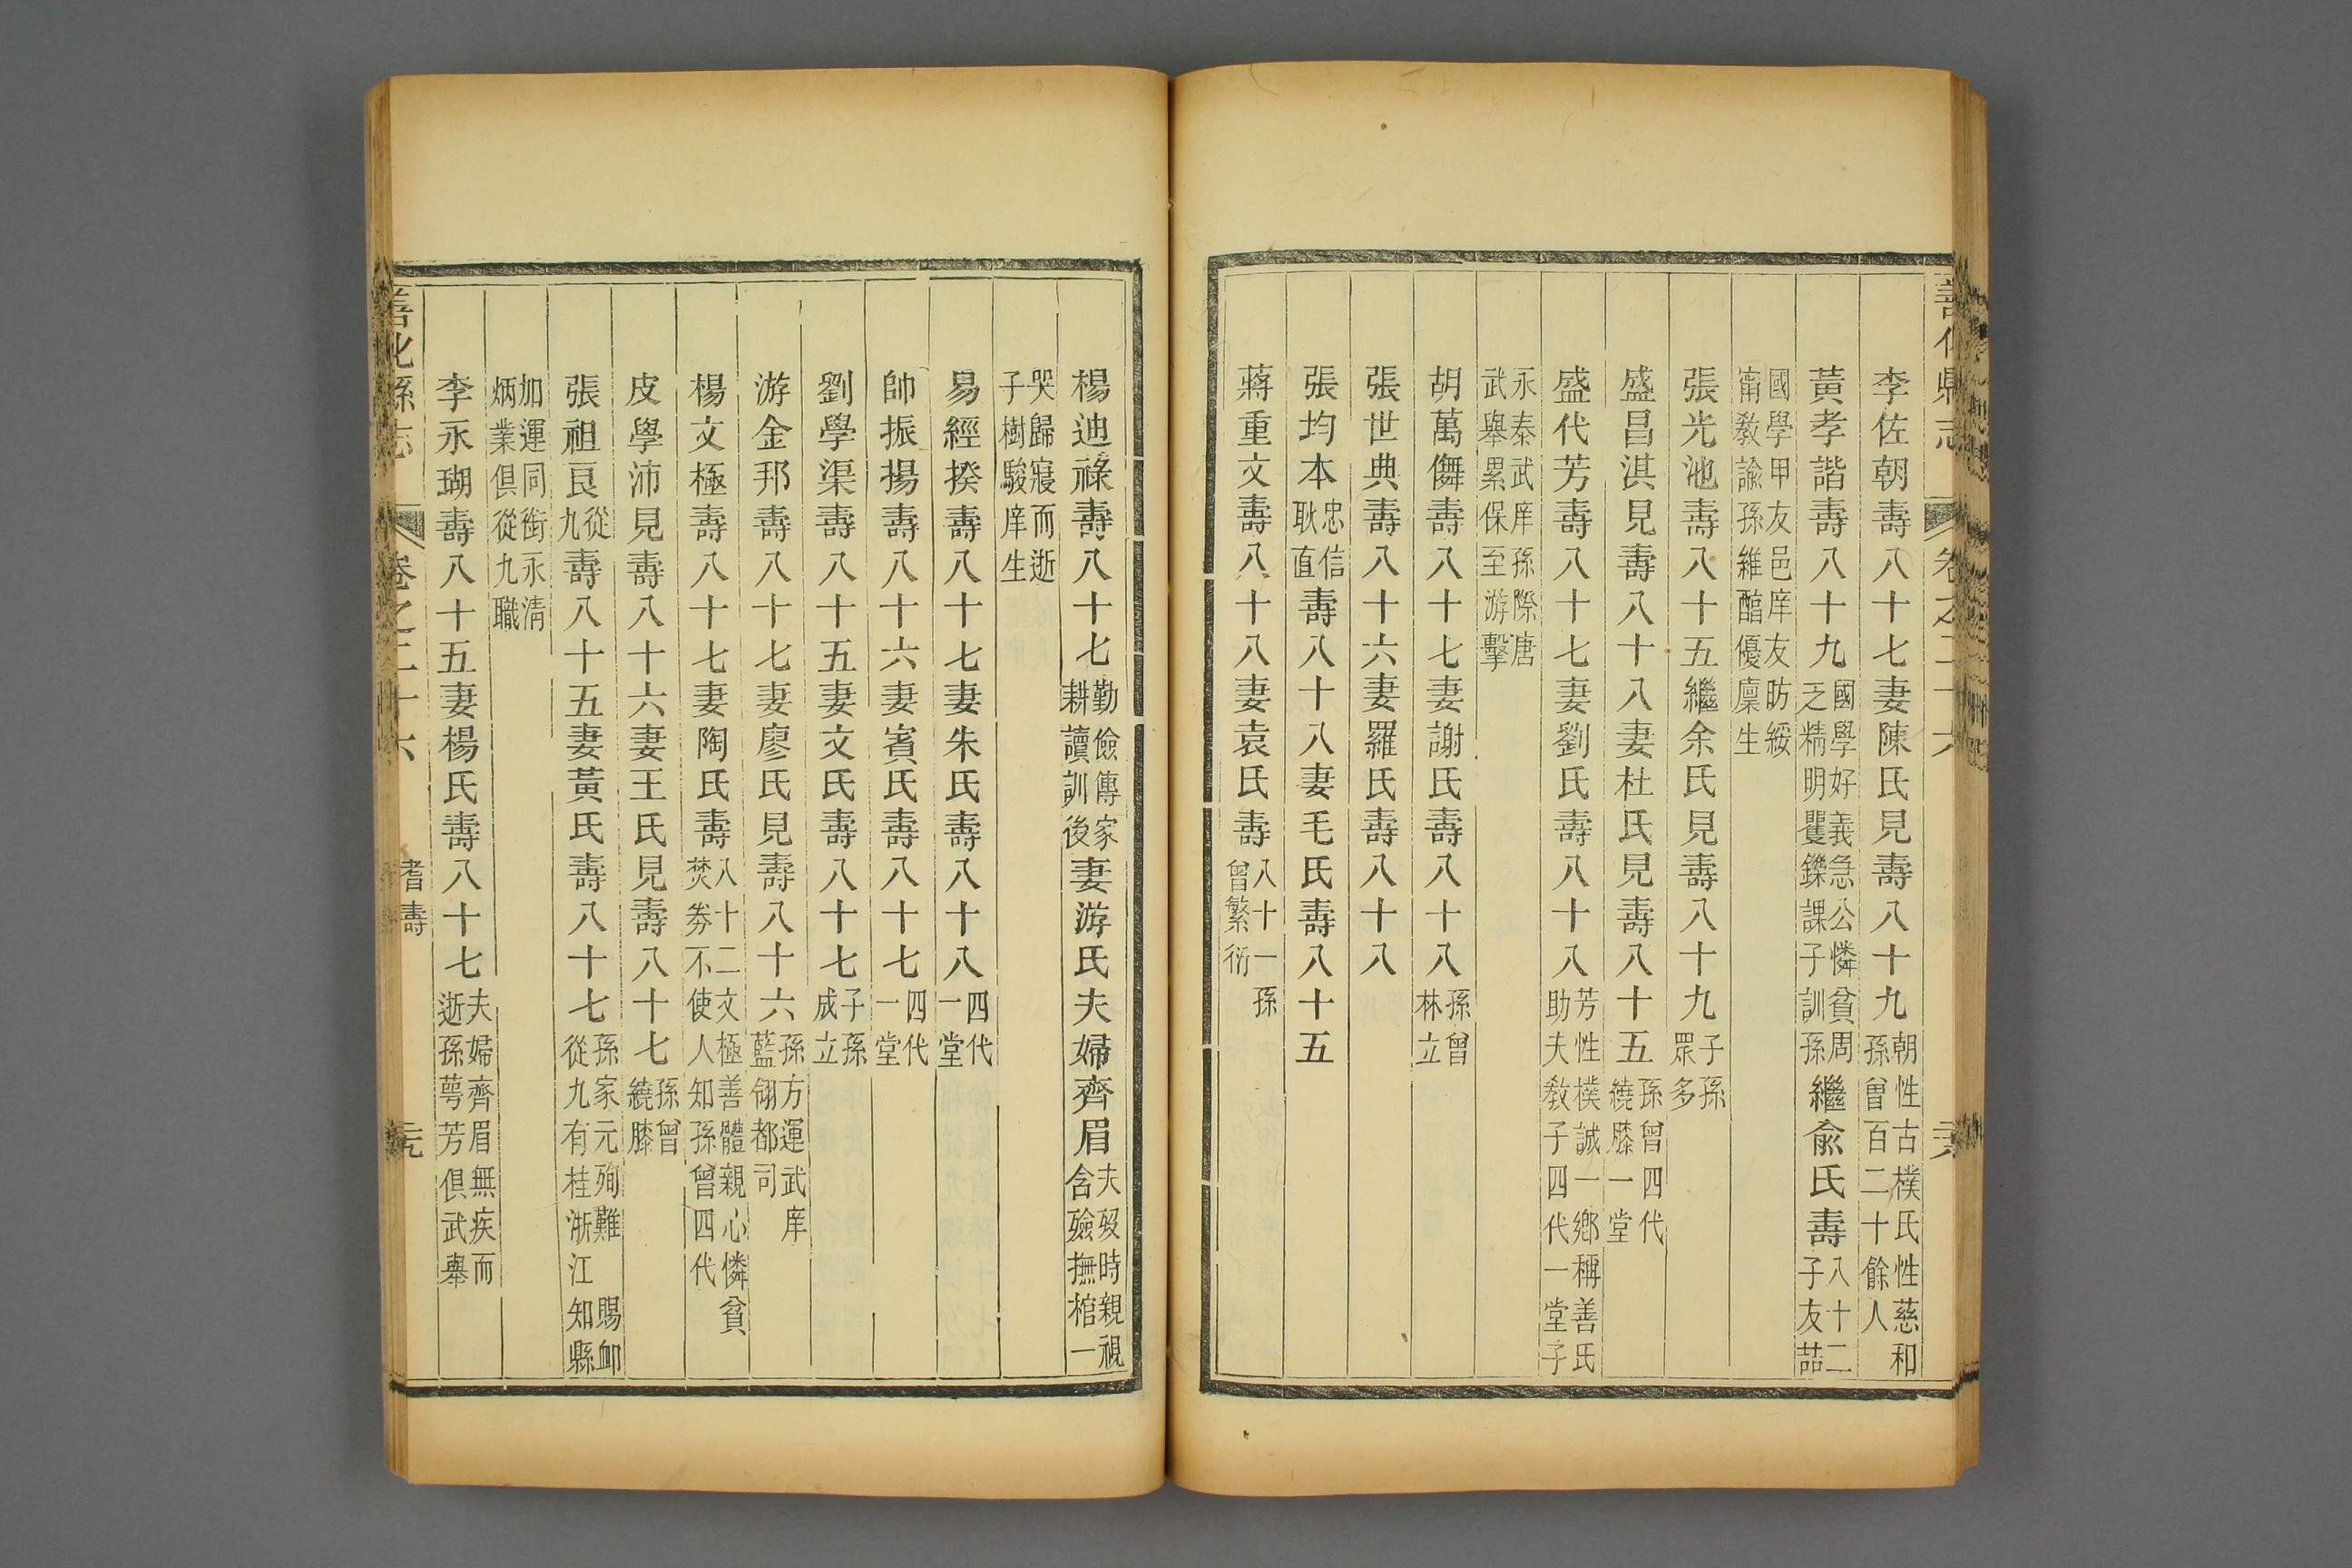 善化縣志
卷之二十六
李佐朝壽八十七妻陳氏見壽八十九朝性古樸氏性慈和孫曾百二十餘人
黃孝諧壽八十九國學好義急公憐貧周乏精明矍鑠課子訓孫繼俞氏壽八十二子友喆
國學甲友邑庠友昉綏甯教諭孫維醕優廩生
張光池壽八十五繼余氏見壽八十九子孫眾多
盛昌淇見壽八十八妻杜氏見壽八十五孫曾四代繞膝一堂
盛代芳壽八十七妻劉氏壽八十八芳性樸誠一鄉稱善氏助夫教子四代一堂子
永泰武庠孫際唐武舉累保至游擊
胡萬儛壽八十七妻謝氏壽八十八孫曾林立
張世典壽八十六妻羅氏壽八十八
張均本忠信耿直壽八十八妻毛氏壽八十五
蔣重文壽八十八妻袁氏壽八十一孫曾繁衍
楊迪祿壽八十七勤儉傳家耕讀訓後妻游氏夫婦齊眉夫歿時親視含殮撫棺一
哭歸寢而逝子樹駿庠生
易經揆壽八十七妻朱氏壽八十八四代一堂
帥振揚壽八十六妻賓氏壽八十七四代一堂
劉學渠壽八十五妻文氏壽八十七子孫成立
游金邦壽八十七妻廖氏見壽八十六孫方運武庠藍翎都司
楊文極壽八十七妻陶氏壽八十二文極善體親心憐貧焚劵不使人知孫曾四代
皮學沛見壽八十六妻王氏見壽八十七孫曾繞膝
張祖良從九壽八十五妻黃氏壽八十七孫家元殉難賜卹從九有桂浙江知縣
加運同銜永清炳業俱從九職
李永瑚壽八十五妻楊氏壽八十七夫婦齊眉無疾而逝孫萼芳俱武舉
善化縣志
卷之二十六
耆壽